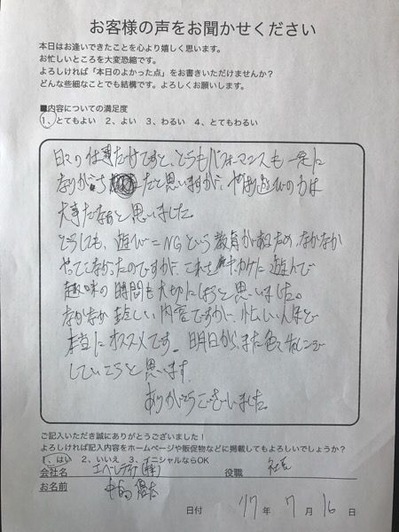 お客様の声をお聞かせください
本日はお逢いできたことを心より嬉しく思います。
お忙しいところを大変恐縮です。
よろしければ「本日のよかった点」をお書きいただけませんか?
どんな些細なことでも結構です。よろしくお願いします。
■内容についての満足度
1、とてもよい 2、よい 3、わるい 4、とてもわるい
日々の仕事だけですと、どうもパフォーマンスも一定に
なりがちだと思いますが、やはり遊びの力は
大事だなあと思いました。
どうしても、遊び=NGという教育があるため、なかなか
やってこなかったのですが、これをキッカケに遊んで
趣味の時間も大切にしようと思いました。
なかなか楽しい内容ですが、忙しい人ほど
本当にオススメです。明日からまた色々チャレンジ
していこうと思います
ありがとうございました。
ご記入いただき誠にありがとうございました!
よろしければ記入内容をホームページや販促物などに掲載してもよろしいでしょうか?
1、はい 2、いいえ 3、イニシャルならOK
会社名 (株) 役職 社長
お名前
日付 17年 7月 16日